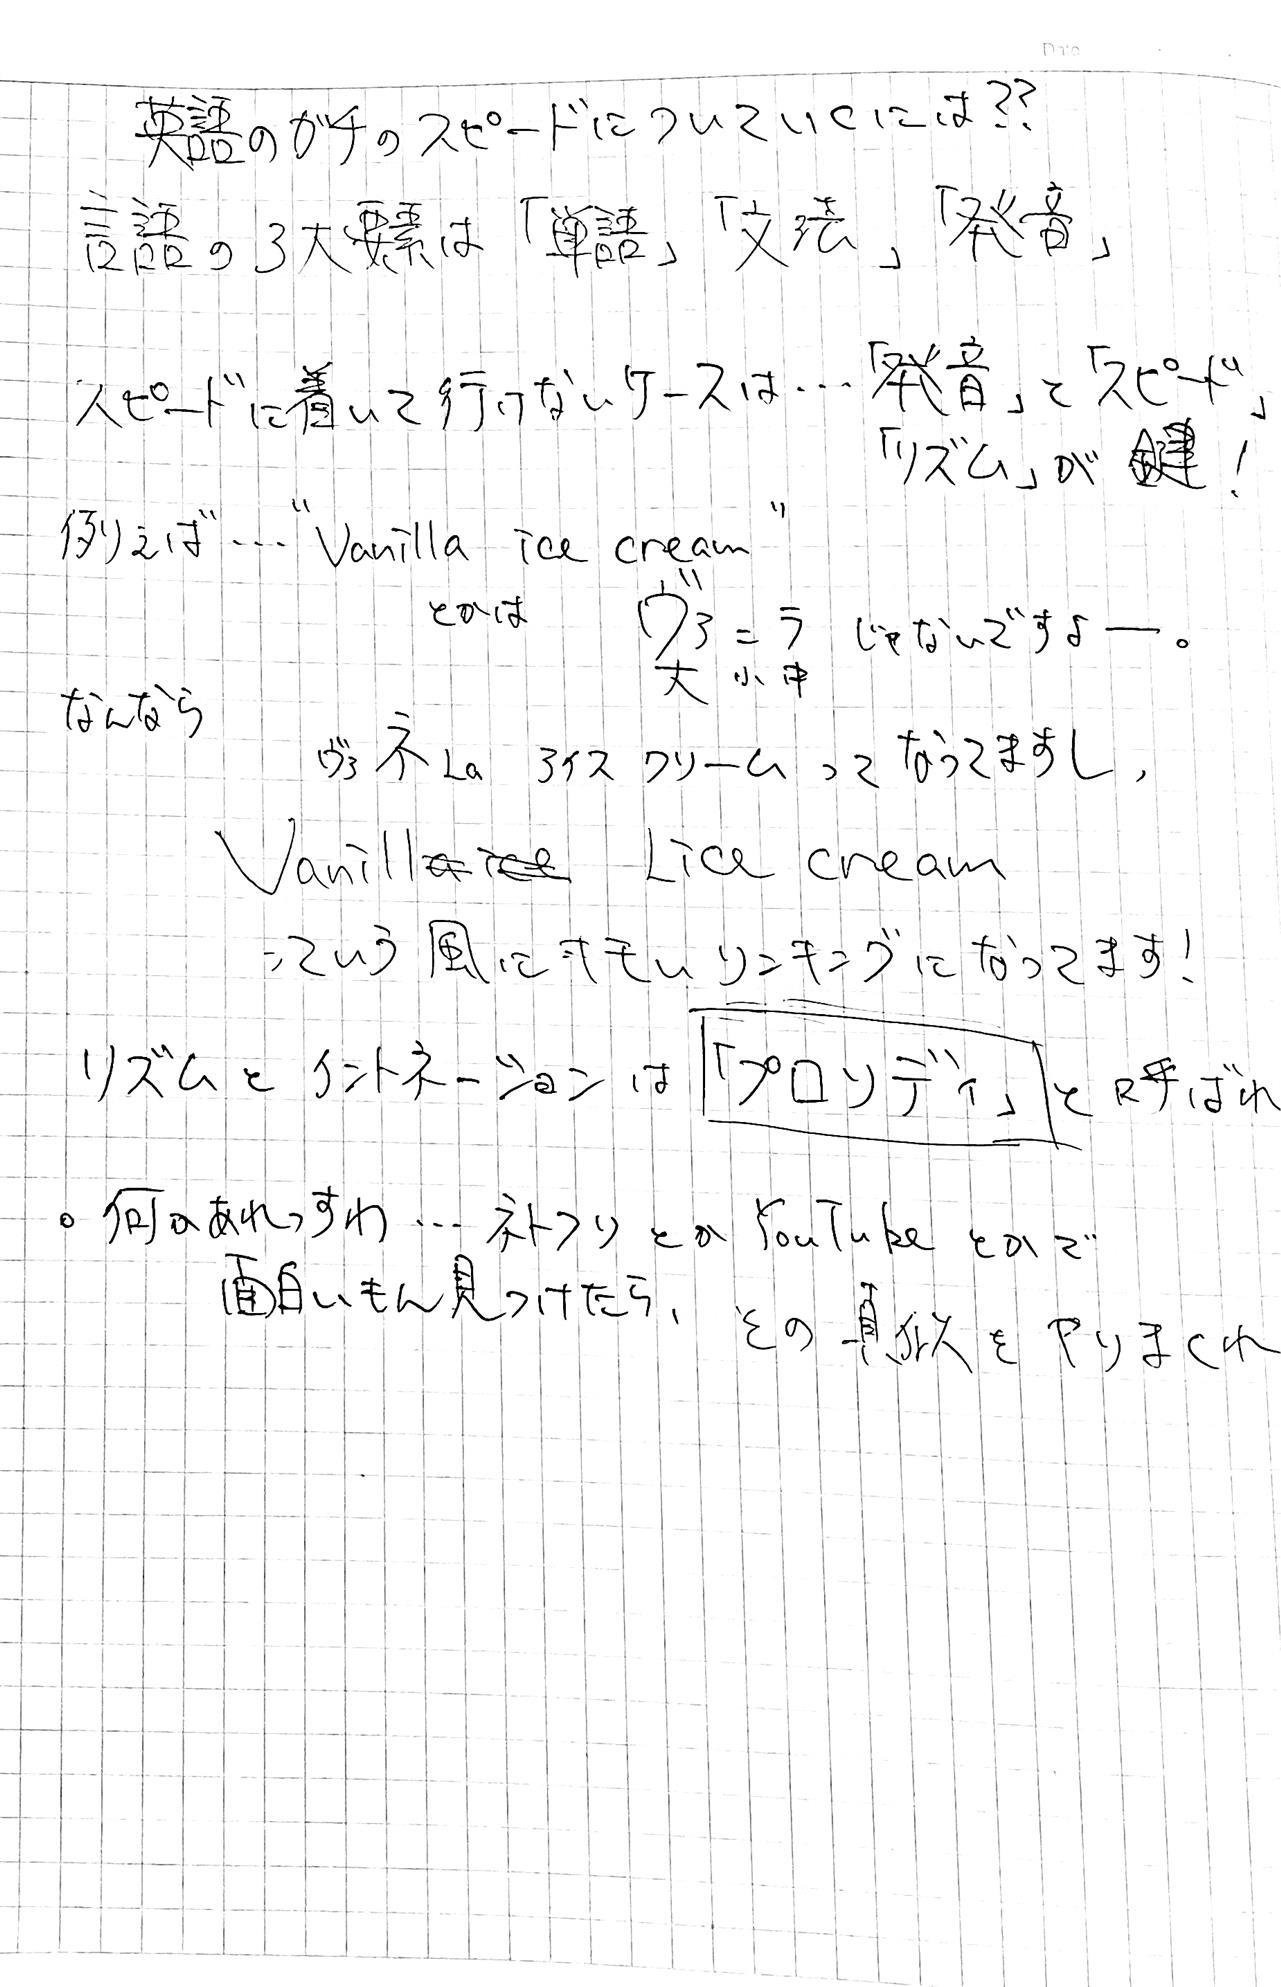 英語のガチのスピードについていくには??
言語の3大要素は「単語」「文法」「発音」
スピードに着いて行けないケースは…「発音」と「スピード」
「リズム」が鍵!
例えば…"Vanilla ice cream"
とかは ヴァニラ じゃないですよー。
大 小 中
なんなら
ヴァネLa アイスクリームってなってますし、
Vanilla ice Lice cream
っていう風にキモいリンキングになってます!
リズムとイントネーションは「プロソディ」と呼ばれ
。何かあれっすわ…ネトフリとかYouTubeとかで
面白いもん見つけたら、その真似をやりまくれ